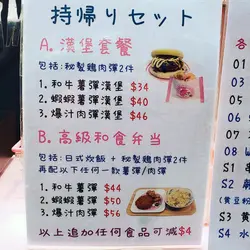 持帰りセット
A. 漢堡套餐
包括: 秘製鶏肉彈2件
1. 和牛薯彈漢堡 $34
2. 蝦蝦薯彈漢堡 $40
3. 爆汁肉彈漢堡 $46
B. 高級和食弁当
包括: 日式炊飯 + 秘製鶏肉彈2件
再配以下任何一款薯彈/肉彈
1. 和牛薯彈 $44
2. 蝦蝦薯彈 $50
3. 爆汁肉彈 $56
以上追加任何食品可減$4
各
S1
S2
S3 黃
S4 水